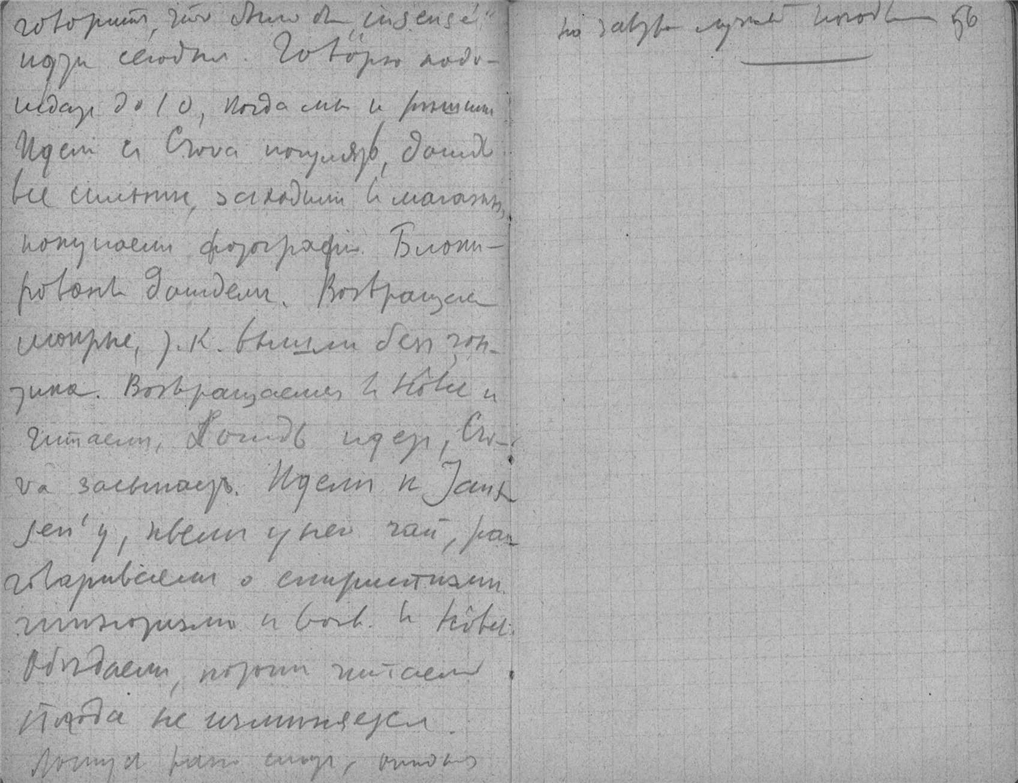 говоритъ, что было бы "insensé"
идти сегодня. Говорю подо-
ждать до 10, когда мы и рѣшимъ
Идемъ съ Crova погулять, дождь
все сильнѣе, заходимъ въ магазинъ,
покупаемъ фотографіи. Блоки-
рованы дождемъ. Возвращаемся
мокрые, т.к. вышли безъ зон-
тика. Возвращаемся въ Hôtel и
читаемъ. Дождь идетъ, Cro-
va засыпаетъ. Идемъ къ Jans-
sen'у, пьемъ у него чай, раз-
говариваемъ о спиритизмѣ
гипнотизмѣ и возв. въ Hôtel.
Обѣдаемъ, потомъ читаемъ
Погода не измѣняется.
Ложусь рано спать,
на завтра лучшей погоды 56